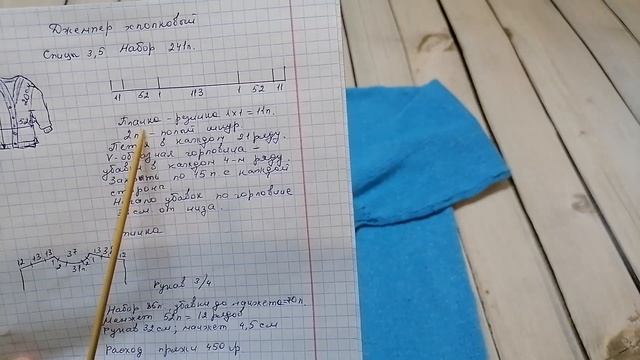 Джемпер хлопковый
Спицы 3,5 Набор 241п.
11 52 1 113 1 52 11
Планка - резинка 1х1 = 11п.
2п - полый шнур.
Петля в каждом 21 ряду.
V-образная горловина -
убавки в каждом 4-м ряду
Закрыть по 45п с каждой
стороны
Начало убавок по горловине
см от низа.
12 13 13 37 13 12
37п
Рукав 3/4
Набор 86п, убавки до манжета=70п
Манжет 52п = 12 рядов
Рукав 32см; манжет 4,5 см
Расход пряжи 450 гр